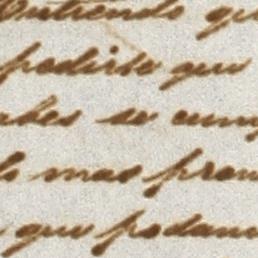 Entiendo qu
pedirle que
bes se cump
lo mas pron
que podamo